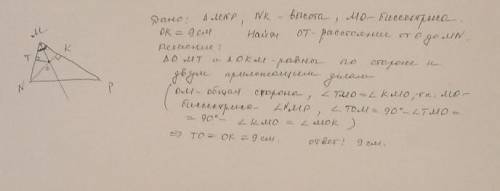 M
T
K
O
N
P
Дано: ΔMNP, NK – высота, MO – биссектриса.
OK = 9 см Найти OT – расстояние от O до MN.
Решение:
ΔOMT и ΔOKM – равны по стороне и
двум прилежащим углам
(OM – общая сторона, ∠TMO = ∠KMO, т.к. MO –
биссектриса ∠NMP, ∠TOM = 90° – ∠TMO =
= 90° – ∠KMO = ∠MOK)
⇒ TO = OK = 9 см. ответ: 9 см.